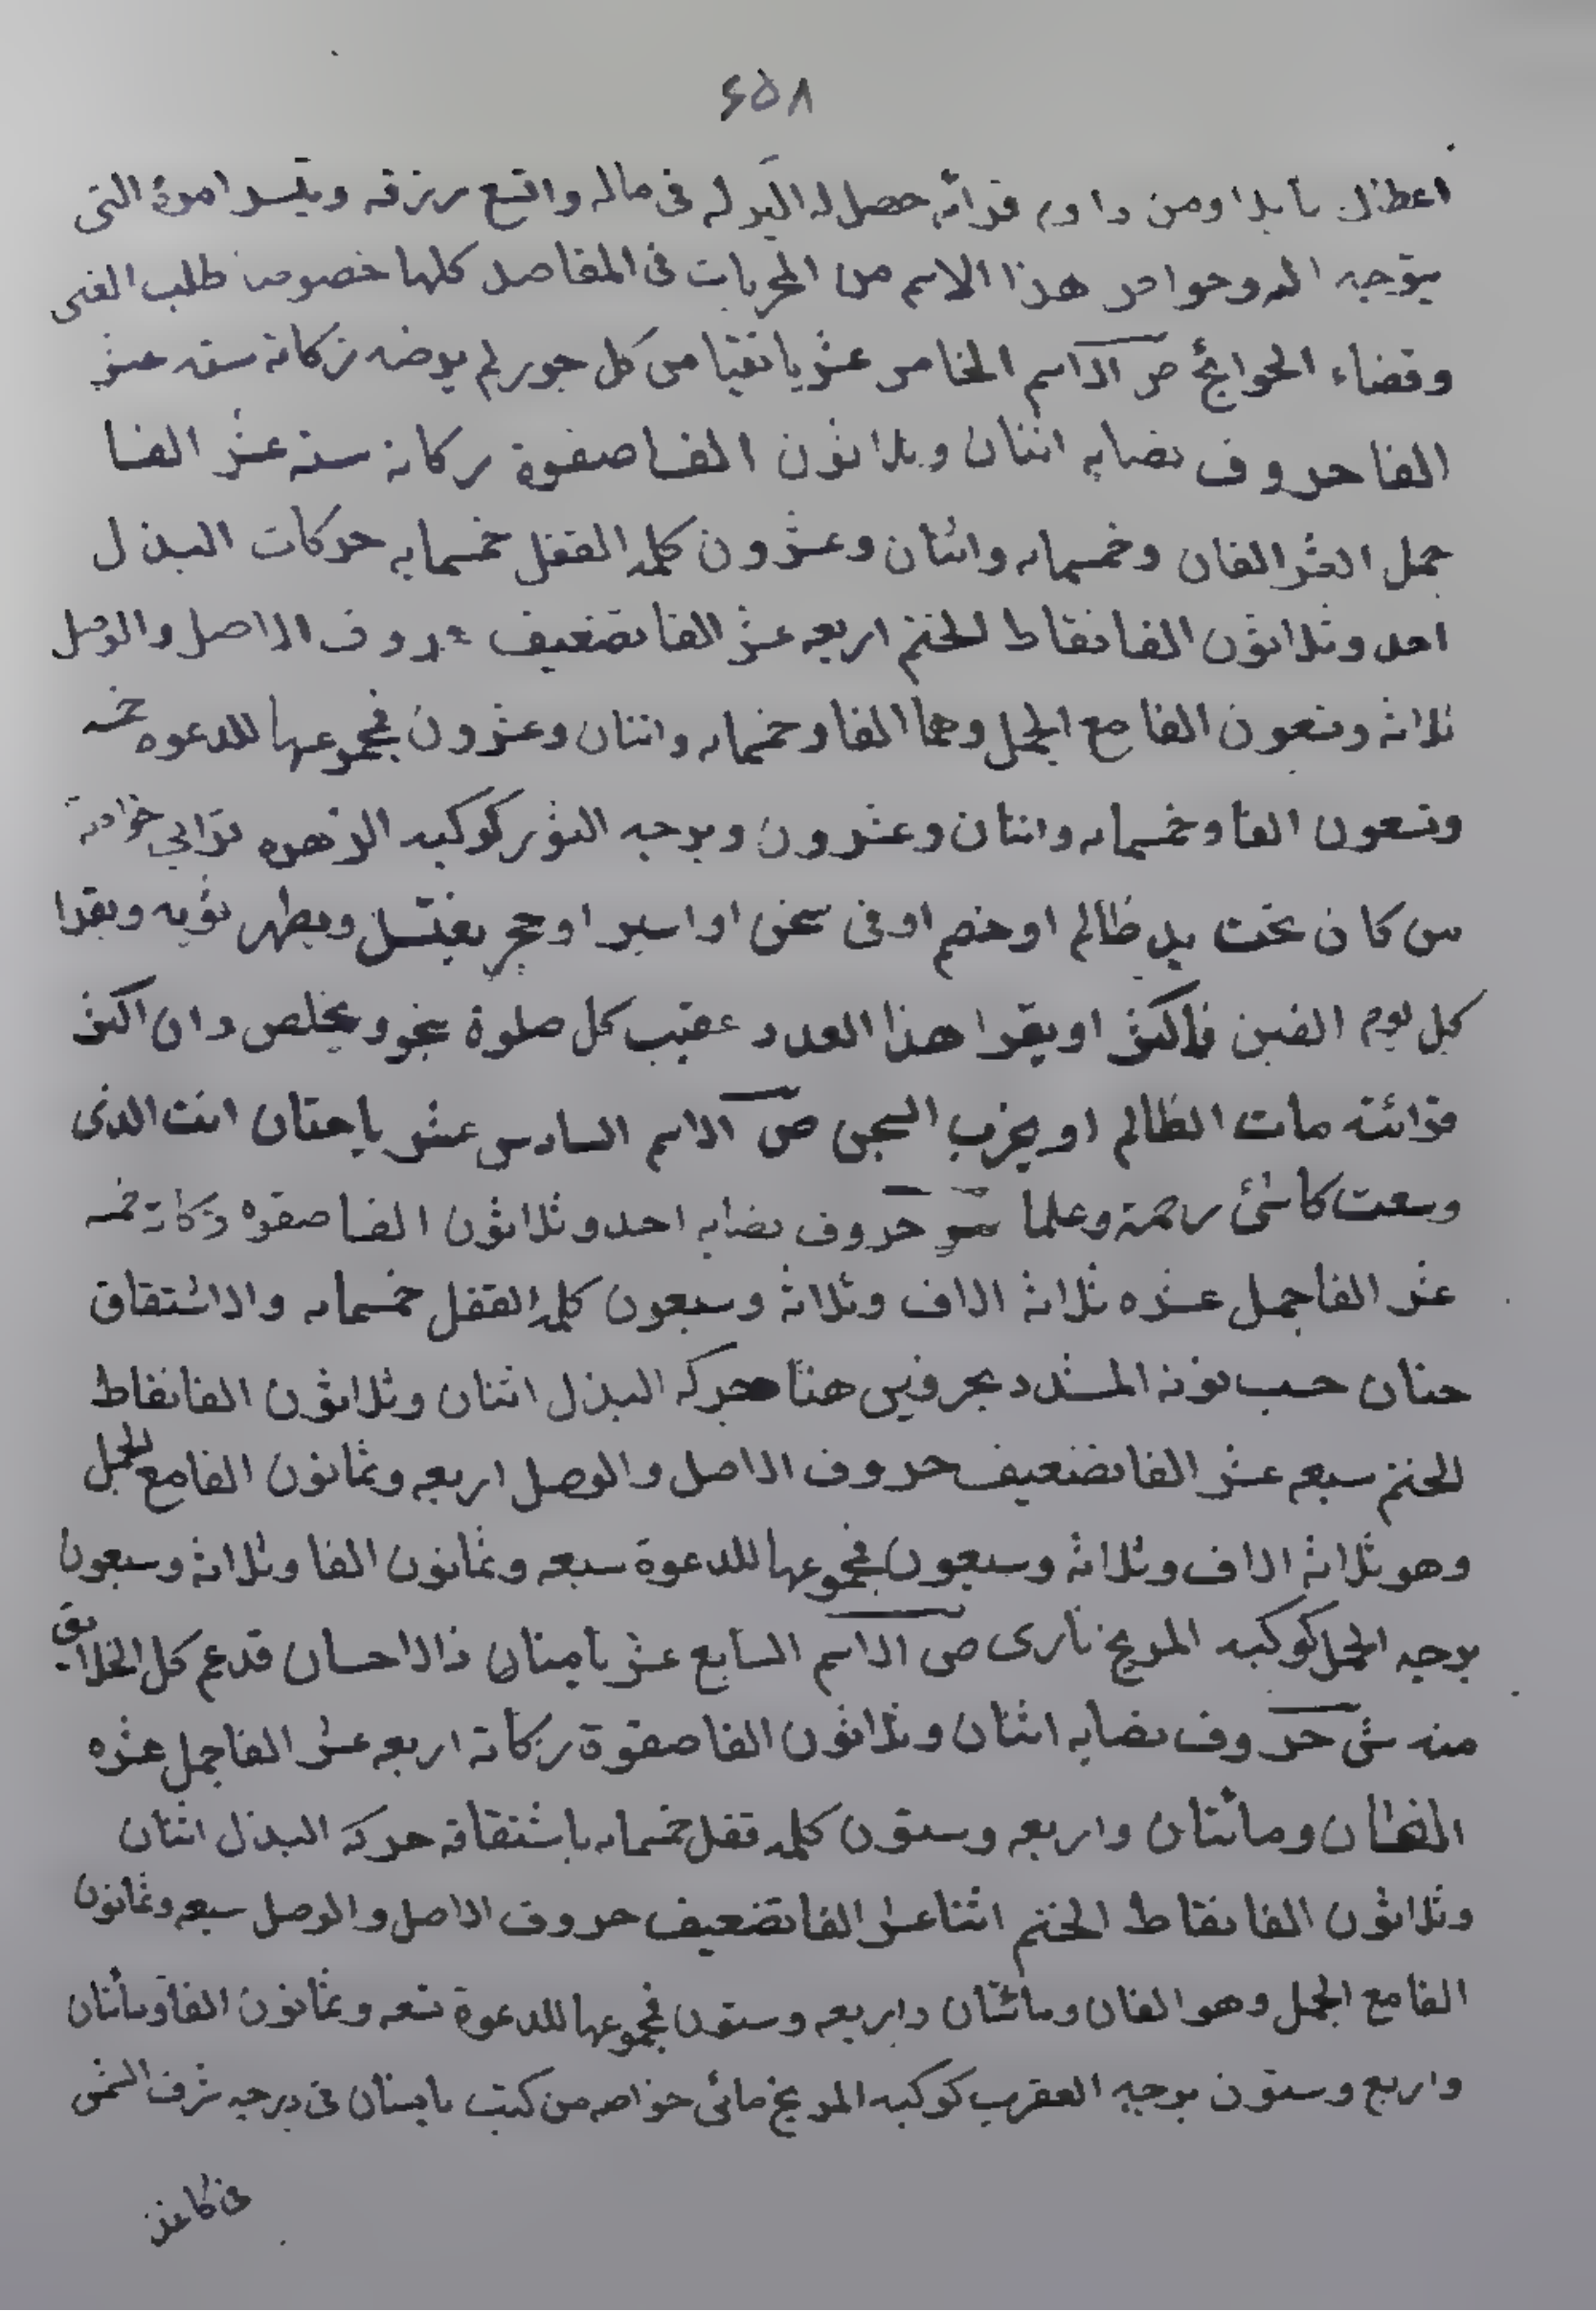 ٤٥٨
اعطاك ومن داوم قرائه حصل له البركه فى ماله واتسع رزقه وتيسر اموره التى
يتوجه اله وخواص هذا الاسم من المجربات فى المقاصد كلها خصوصا طلب الغنى
وقضاء الحوائج ص الاسم الخامس عشر يا نقيا من كل جور لم يرضه زكاته سته عشر
الفا حروف نصابه اثنان وثلاثون الفا صفوة زكاته سته عشر الفا
جمل العشر الفان وخمسمايه واثنان وعشرون كلمه القفل خمسمايه حركات البذل
احد وثلاثون الفا نقاط الختم اربعه عشر الفا تضعيف حروف الاصل والوصل
ثلاثه وتسعون الفا مع الجمل وهما الفا وخمسمايه واثنان وعشرون فمجموعها للدعوه خمسه
وتسعون الفا وخمسمايه واثنان وعشرون وبرجه الثور كوكبه الزهره ترابى خواصه
من كان تحت يد ظالم او خصم او فى سجن او اسير او حجر يغتسل ويطهر ثوبه ويقرا
كل يوم الفين فاكثر او يقرا هذا العدد عقيب كل صلوة ينجو ويخلص وان اكثر
قرائته مات الظالم او يخرب السجن ص الاسم السادس عشر يا حنان انت الذى
وسعت كل شئ رحمة وعلما حروف نصابه احد وثلاثون الفا صفوه زكاته خمسه
عشر الفا جمل عشره ثلاثه الاف وثلاثه وسبعون كلمه القفل خمسمايه والاشتقاق
حنان حسب نونه المشدد بحرفين هنا حركه البذل اثنان وثلاثون الفا نقاط
الختم سبعه عشر الفا تضعيف حروف الاصل والوصل اربعه وثمانون الفا مع الجمل
وهو ثلاثه الاف وثلاثه وسبعون فمجموعها للدعوة سبعه وثمانون الفا وثلاثه وسبعون
برجه الحمل كوكبه المريخ نارى ص الاسم السابع عشر يا منان ذا الاحسان قد عم كل الخلائق
منه حروف نصابه اثنان وثلاثون الفا صفوة زكاته اربعه عشر الفا جمل عشره
الفان ومائتان واربعه وستون كلمه قفل خمسمايه باشتقاقه حركه البذل اثنان
وثلاثون الفا نقاط الختم اثنا عشر الفا تضعيف حروف الاصل والوصل سبعه وثمانون
الفا مع الجمل وهو الفان ومائتان واربعه وستون فمجموعها للدعوة تسعه وثمانون الفا ومائتان
واربع وستون برجه العقرب كوكبه المريخ مائى خواصه من كتب يا منان فى درجه شرف الشمس
فى كاغذ